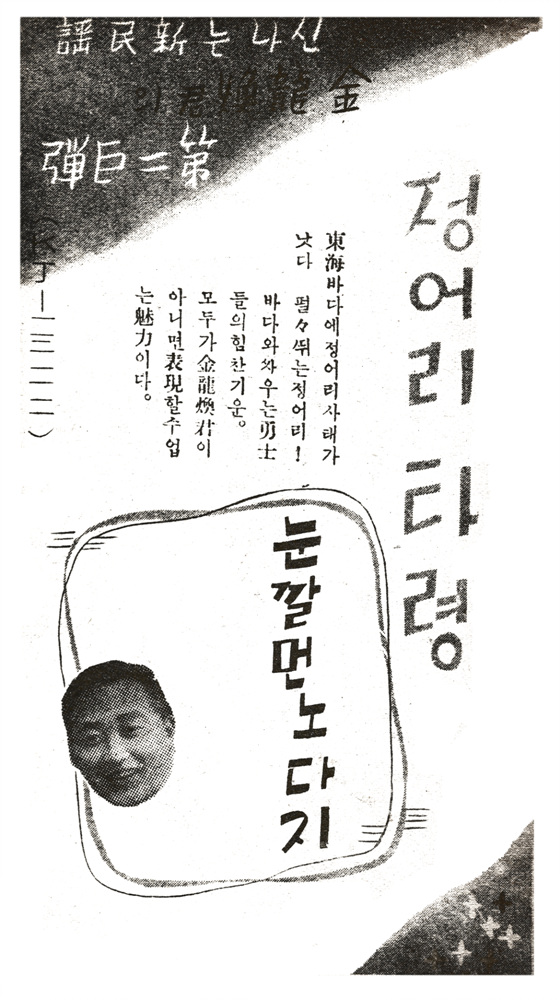 신나는新民謠
金龍煥君의
第二巨彈
정어리 타령
東海바다에정어리사태가
낫다 펄々ᄯᅱ는정어리!
바다와싸우는勇士
들의힘찬기운。
모두가金龍煥君이
아니면表現할수업
는魅力이다。
눈깔먼노다지